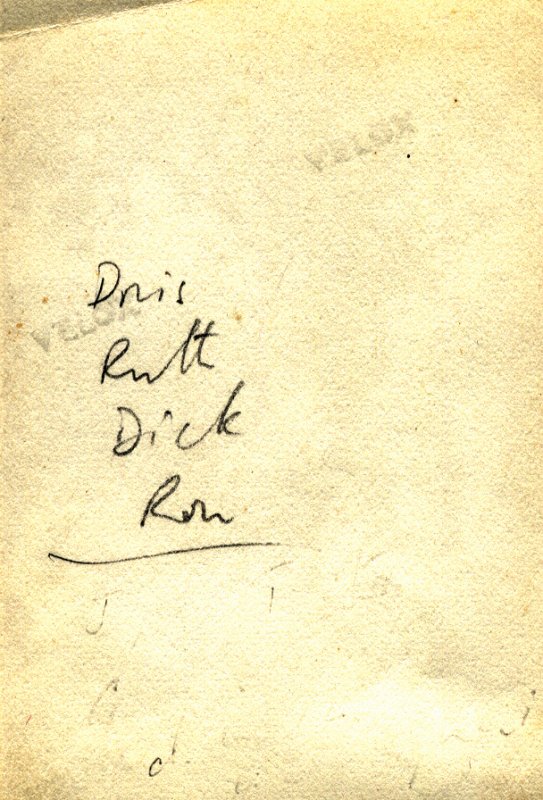 VELOX
Doris
VELOX
Ruth
Dick
Ron